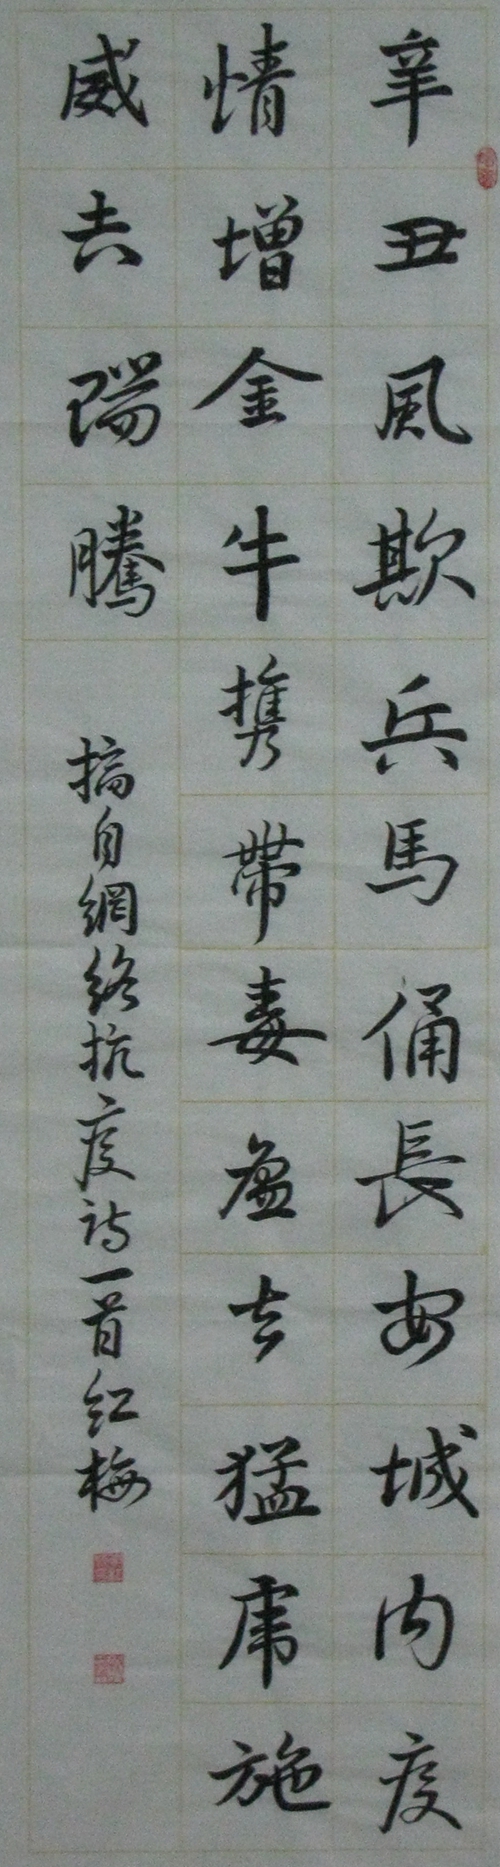 辛丑風欺兵馬俑長安城内疫
情增金牛携帶毒盈去猛虎施
威吉瑞騰
摘自網络抗疫诗一首红梅